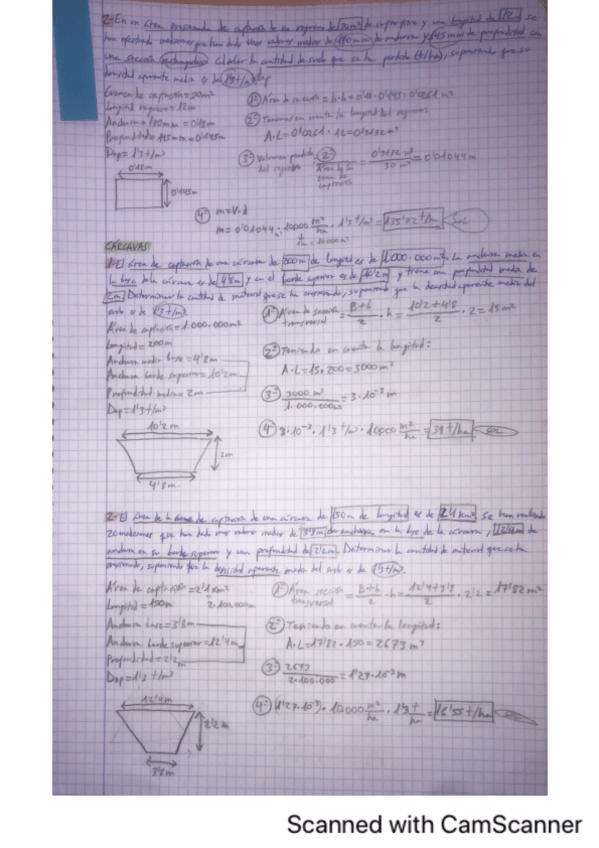 2- En un área ocasionada de captación de un reguero de 30m² de superficie y una longitud de 12m se
han efectuado mediciones que han dado unos valores medios de 180mm de anchura y 145mm de profundidad con
una sección rectangular. Calcular la cantidad de suelo que se ha perdido (t/ha), suponiendo que su
densidad aparente media es de 1'3 t/m³
Cuenca de captación = 30m²
Longitud reguero = 12m
Anchura = 180mm = 0'18m
Profundidad = 145mm = 0'145m
Dap = 1'3 t/m³
0'18m
0'145m
1º Área de sección = b·h = 0'18·0'145 = 0'0261m²
2º Tenemos en cuenta la longitud del reguero:
A·L = 0'0261·12 = 0'3132m³
3º Volumen perdido del reguero
= 0'3132 m³ / 30 m² = 0'01044m
4º m = V·d
m = 0'01044 · 10000 m²/ha · 1'3 t/m³ = 135'72 t/ha
CÁRCAVAS
1- El área de captación de una cárcava de 200m de longitud es de 1.000.000m². La anchura media en
la base de la cárcava es de 4'8m y en el borde superior es de 10'2m y tiene una profundidad media de
2m. Determinar la cantidad de material que se ha erosionado, suponiendo que la densidad aparente media del
suelo es de 1'3 t/m³
Área de captación = 1.000.000m²
Longitud = 200m
Anchura media base = 4'8m
Anchura borde superior = 10'2m
Profundidad media = 2m
Dap = 1'3 t/m³
10'2m
2m
4'8m
1º Área de sección transversal = B+b / 2 · h = 10'2+4'8 / 2 · 2 = 15m²
2º Teniendo en cuenta la longitud:
A·L = 15·200 = 3000m³
3º 3000 m³ / 1.000.000m² = 3·10⁻³ m
4º 3·10⁻³ · 1'3 t/m³ · 10000 m²/ha = 39 t/ha
2- El área de la cuenca de captación de una cárcava de 150m de longitud es de 2'1 km². Se han realizado
20 mediciones que han dado unos valores medios de 3'8m de anchura en la base de la cárcava, 12'4m de
anchura en su borde superior y una profundidad de 2'2m. Determinar la cantidad de material que se ha
erosionado, suponiendo que la densidad aparente media del suelo es de 1'3 t/m³.
Área de captación = 2'1 km²
2.100.000m²
Longitud = 150m
Anchura base = 3'8m
Anchura borde superior = 12'4m
Profundidad = 2'2m
Dap = 1'3 t/m³
12'4m
2'2m
3'8m
1º Área sección transversal = B+b / 2 · h = 12'4+3'8 / 2 · 2'2 = 17'82 m²
2º Teniendo en cuenta la longitud:
A·L = 17'82·150 = 2673m³
3º 2673 / 2.100.000 = 1'27·10⁻³ m
4º (1'27·10⁻³) · 10000 m²/ha · 1'3 t/ha = 16'55 t/ha
Scanned with CamScanner